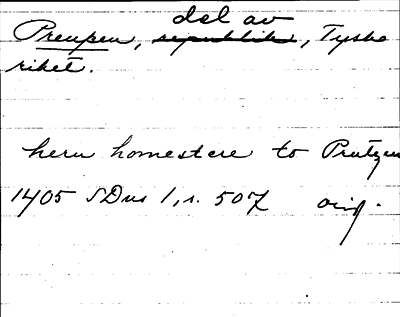 del av
Preupen, republik, Tyska
riket.
heru homestere to Prutzen
1405 SDns 1, s. 507 orig.